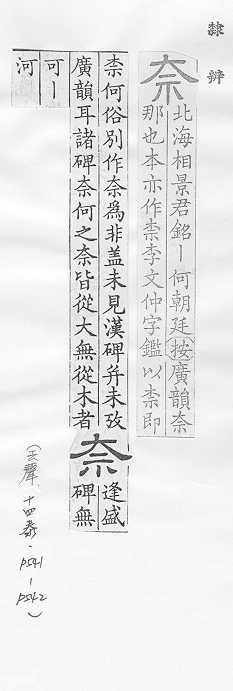 隸辨
奈北海相景君銘丨何朝廷按廣韻奈
那也本亦作柰李文仲字鑑以柰即
柰何俗別作奈爲非盖未見漢碑并未攷
廣韻耳諸碑奈何之奈皆從大無從木者奈逢盛碑無
可丨
河
(去聲．十四泰．P541-P542)